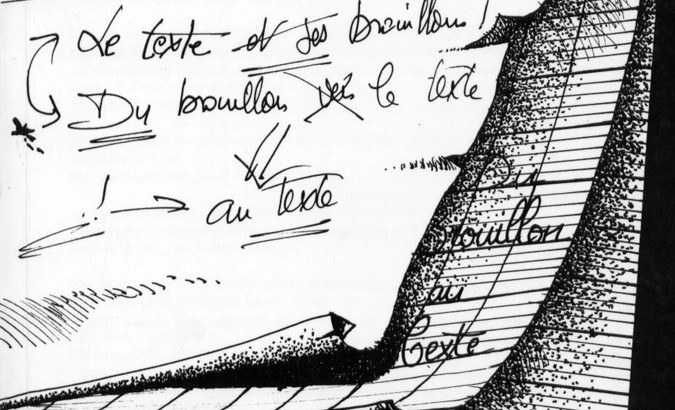 Le texte et ses brouillons !
Du brouillon vers le texte
! → au texte
Du
brouillon
au
texte